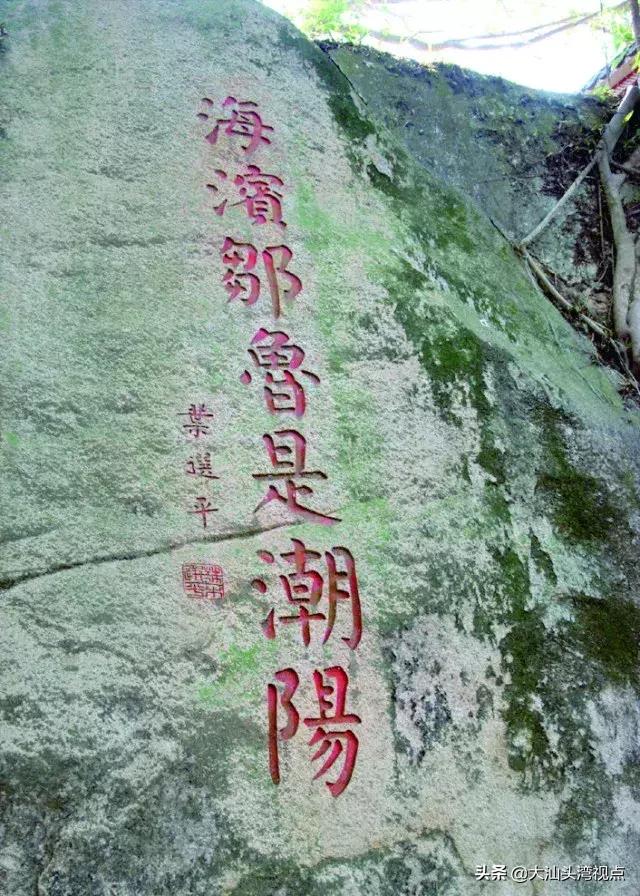 海濱鄒魯是潮陽
葉選平
头条 @大汕头湾视点